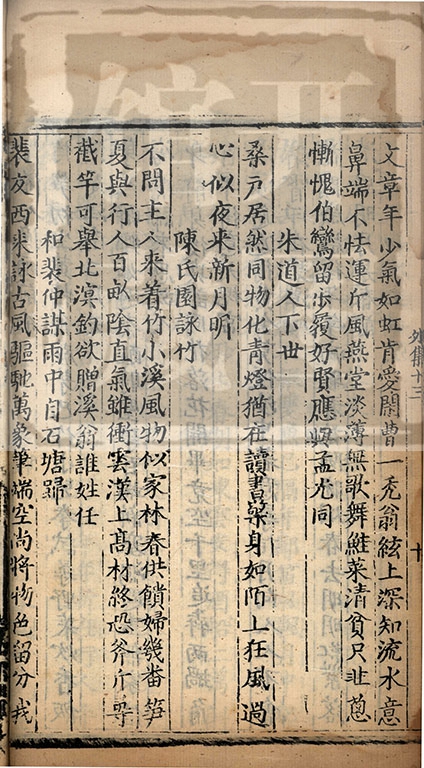 文章年少氣如虹肯愛閑曹一禿翁絃上深知流水意
鼻端不怯運斤風燕堂淡薄無歌舞鮭菜清貧只韭葱
慚愧伯鸞留步屧好賢應與孟光同
朱道人下世
桑戸居然同物化青燈猶在讀書檠身如陌上狂風過
心似夜來新月听
陳氏園詠竹
不問主人來着竹小溪風物似家林春供饋婦幾番笋
夏與行人百畝陰直氣雖衝雲漢上高材終恐斧斤尋
截竿可舉北溟釣欲贈溪翁誰姓任
和裴仲謀雨中自石塘歸
裴友西來詠古風驅馳萬象筆端空尚將物色留分我
外集十三
十